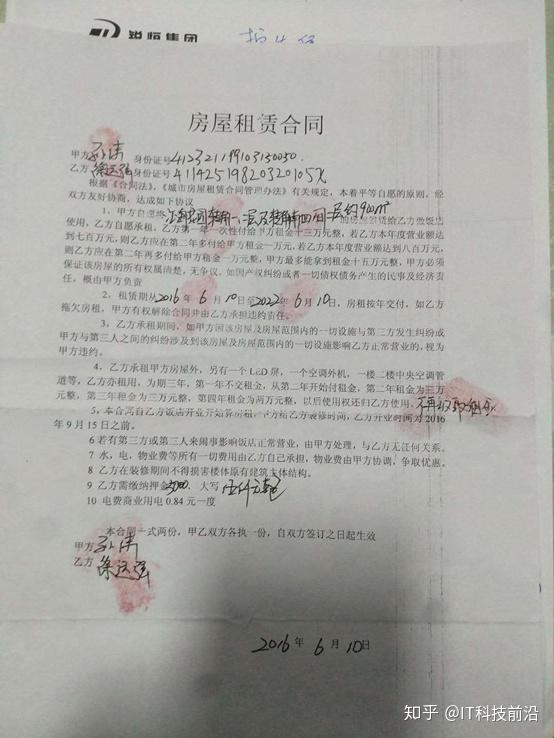 锐恒集团
房屋租赁合同
甲方 孙涛 身份证号
乙方 徐运强 身份证号
根据《合同法》,《城市房屋租赁合同管理办法》有关规定,本着平等自愿的原则,经
双方友好协商,达成如下协议
1,甲方自愿将 的房屋租赁给乙方做饭店
使用,乙方自愿承租,乙方第一年一次性付给甲方租金十三万元整,若乙方本年度营业额达
到七百万元,则乙方应在第二年多付给甲方租金一万元,若乙方本年度营业额达到八百万元,
则乙方应在第二年再多付给甲方租金一万元整,甲方最多能拿到租金十五万元整,甲方必须
保证该房屋的所有权属清楚,无争议,如因产权纠纷或者一切债权债务产生的民事及经济责
任,概由甲方负责
2,租赁期从2016年6月10日至2022年6月10日,房租按年交付,如乙方
拖欠房租,甲方有权解除合同并由乙方承担违约责任。
3,乙方承租期间,如甲方因该房屋及房屋范围内的一切设施与第三方发生纠纷或
甲方与第三人之间的纠纷涉及到该房屋及房屋范围内的一切设施影响乙方正常营业的,视为
甲方违约。
4,乙方承租甲方房屋外,另有一个LED屏,一个空调外机,一楼二楼中央空调管
道等,乙方亦租用,为期三年,第一年不交租金,从第二年开始付租金,第二年租金为三万
元整,第三年租金为三万元整,第四年租金为两万元整,以后使用权还归乙方使用,不再收取租金
5,本合同自乙方饭店开业开始算房租,甲方给乙方装修时间,乙方开业时间为2016
年9月15日之前。
6 若有第三方或第三人来闹事影响饭店正常营业,由甲方处理,与乙方无任何关系。
7 水,电,物业费等所有一切费用由乙方自己承担,物业费由甲方协调,争取优惠。
8 乙方在装修期间不得损害楼体原有建筑主体结构。
9 乙方需缴纳押金5000. 大写
10 电费商业用电0.84元一度
本合同一式两份,甲乙双方各执一份,自双方签订之日起生效
甲方 孙涛
乙方 徐运强
2016年6月10日
知乎 @IT科技前沿